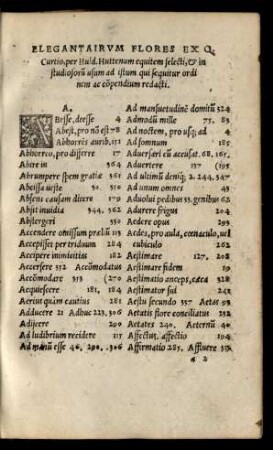 ELEGANTAIRVM FLORES EX Q.
Curtio, per Huld. Huttenum equitem selecti, & in
studiosorū usum ad istum qui sequitur ordi
nem ac cōpendium redacti.
A.
Abesse, deesse 4
Abest, pro nō est 78
Abhorrēs aurib. 151
Abhorreo, pro differre 17
Abire in 364
Abrumpere spem gratiæ 361
Abscissa ueste 30
Absens causam dicere 179
Absit inuidia 344. 362
Abstergeri 57
Accendere omissum præliū 113
Accepisset per triduum 284
Accipere inuidētius 182
Accersere 312 Accōmodatus
Accōmodare 313 (270
Acquiescere 181. 184
Acerius quàm cautius 281
Adducere 21 Adhuc 223. 306
Adijcere 290
Ad ludibrium recidere 115
Ad manū esse 46. 290. 306
Ad mansuetudinē domitū 324
Admodū mille 75. 83
Ad noctem, pro usq; ad 4
Ad somnum 185
Aduersari eū accusat. 68. 161.
Aduertere 197 (163.
Ad ultimū deniq. 2. 244. 347
Ad unum omnes 43
Aduolui pedibus 33. genibus 62
Adurere frigus 204
Aedere opus 293
Aedes, pro aula, cœnaculo, uel
cubiculo 262
Aestimare 127. 208
Aestimare fidem 19
Aestimatio anceps, cæca 328
Aestimator sui 242
Aestu secundo 357 Aetas 93
Aetatis flore conciliatus 232
Aetates 240. Aeternū 40
Affectus, affectio 194
Affirmatio 285. Affluere 35
a 2